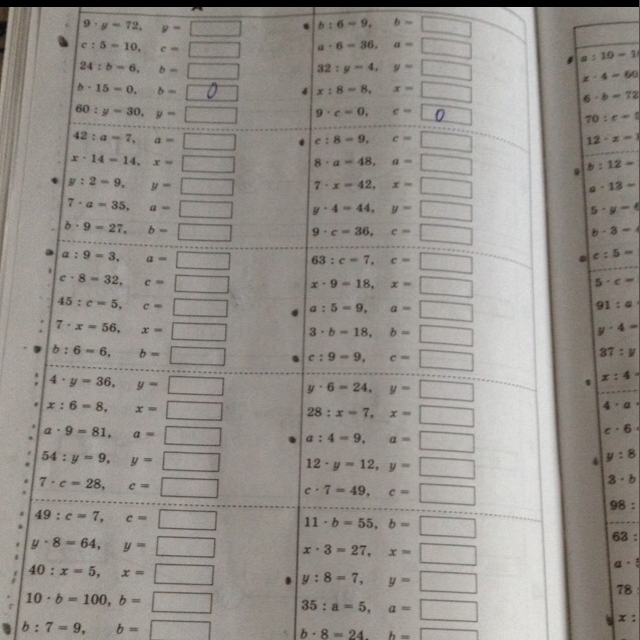 9 · y = 72, y =
c : 5 = 10, c =
24 : b = 6, b =
b · 15 = 0, b = 0
60 : y = 30, y =
42 : a = 7, a =
x · 14 = 14, x =
y : 2 = 9, y =
7 · a = 35, a =
b · 9 = 27, b =
a : 9 = 3, a =
c · 8 = 32, c =
45 : c = 5, c =
7 · x = 56, x =
b : 6 = 6, b =
4 · y = 36, y =
x : 6 = 8, x =
a · 9 = 81, a =
54 : y = 9, y =
7 · c = 28, c =
49 : c = 7, c =
y · 8 = 64, y =
40 : x = 5, x =
10 · b = 100, b =
b : 7 = 9, b =
b : 6 = 9, b =
a · 6 = 36, a =
32 : y = 4, y =
x : 8 = 8, x =
9 · c = 0, c = 0
c : 8 = 9, c =
8 · a = 48, a =
7 · x = 42, x =
y · 4 = 44, y =
9 · c = 36, c =
63 : c = 7, c =
x · 9 = 18, x =
a : 5 = 9, a =
3 · b = 18, b =
c : 9 = 9, c =
y · 6 = 24, y =
28 : x = 7, x =
a : 4 = 9, a =
12 · y = 12, y =
c · 7 = 49, c =
11 · b = 55, b =
x · 3 = 27, x =
y : 8 = 7, y =
35 : a = 5, a =
b · 8 = 24, b =
70 : c =
b : 12 =
a · 13 =
5 · y =
b · 3 =
c : 5 =
5 : c =
91 : a
y · 4 =
37 : y
x : 4
4 · a
c · 6
y : 8
3 · b
98 :
63 :
a ·
78